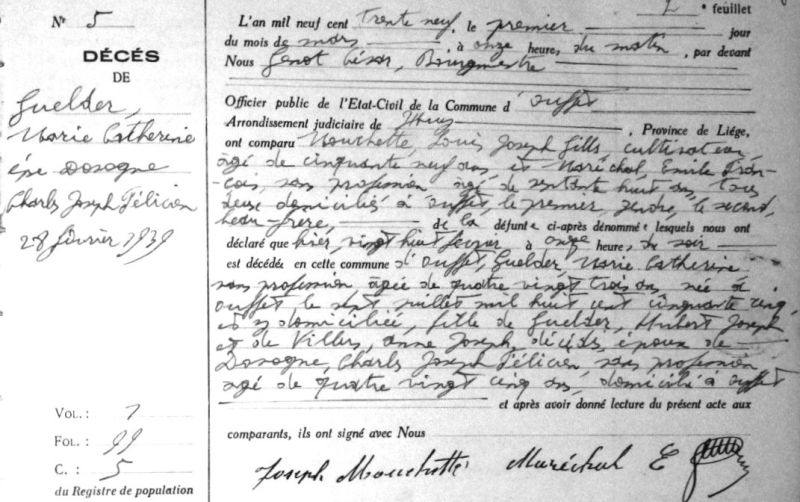 2e feuillet
N° 5
DÉCÈS
DE
Guelder,
Marie Catherine
épse Dosogne
Charles Joseph Félicien
28 février 1939
VOL. : 1
FOL. : 99
C. : 5
du Registre de population
L'an mil neuf cent trente neuf, le premier jour
du mois de mars, à onze heure, du matin, par devant
Nous Genot César, Bourgmestre
Officier public de l'Etat-Civil de la Commune d'Ouffet
Arrondissement judiciaire de Huy, Province de Liége,
ont comparu Mouchette, Louis Joseph fils, cultivateur,
âgé de cinquante neuf ans et Maréchal, Emile Fran-
-çois, sans profession âgé de septante huit ans, tous
deux domiciliés à Ouffet, le premier, gendre, le second,
beau-frère, de la défunte ci-après dénommée lesquels nous ont
déclaré que hier, vingt huit février à onze heure, du soir
est décédée en cette commune d'Ouffet, Guelder, Marie Catherine
sans profession, âgée de quatre vingt trois ans née à
Ouffet le sept juillet mil huit cent cinquante cinq,
et y domiciliée, fille de Guelder, Hubert Joseph
et de Villers, Anne Joseph, décédés, épouse de
Dosogne, Charles Joseph Félicien, sans profession
âgé de quatre vingt cinq ans, domicilié à Ouffet
et après avoir donné lecture du présent acte aux
comparants, ils ont signé avec Nous
Joseph Mouchette Maréchal E